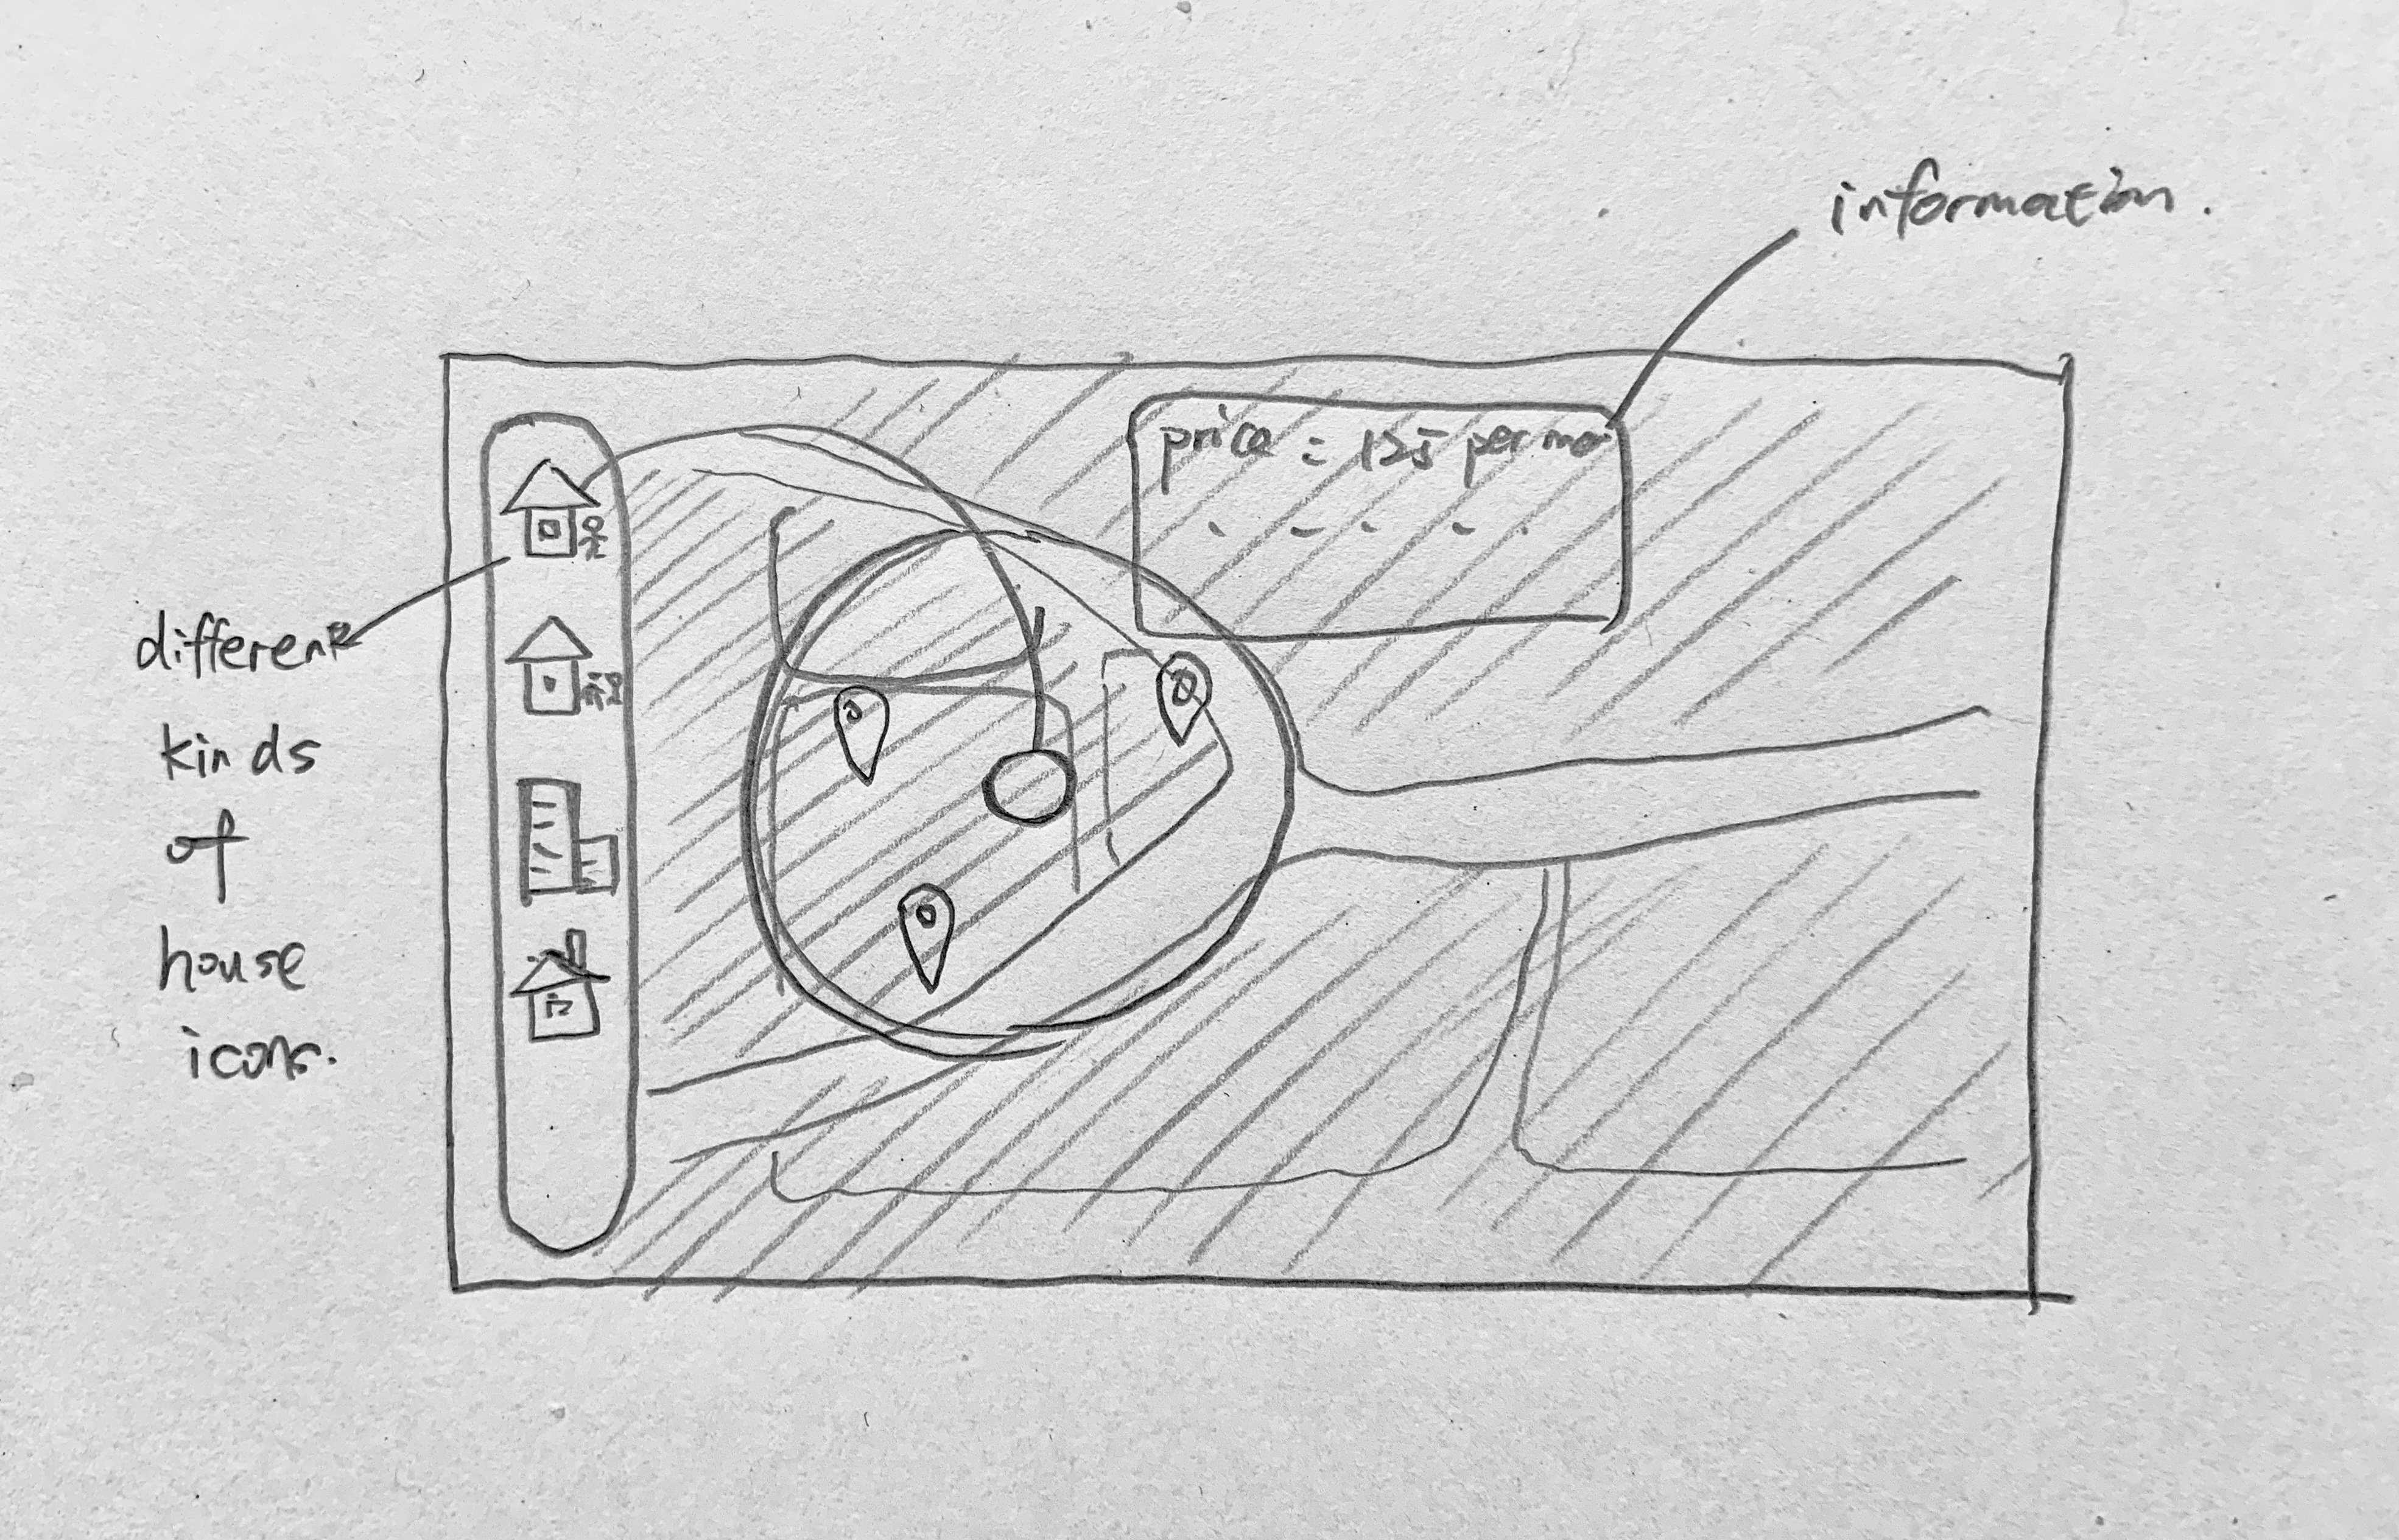 information.
price = 125 per mo
different
kinds
of
house
icons.